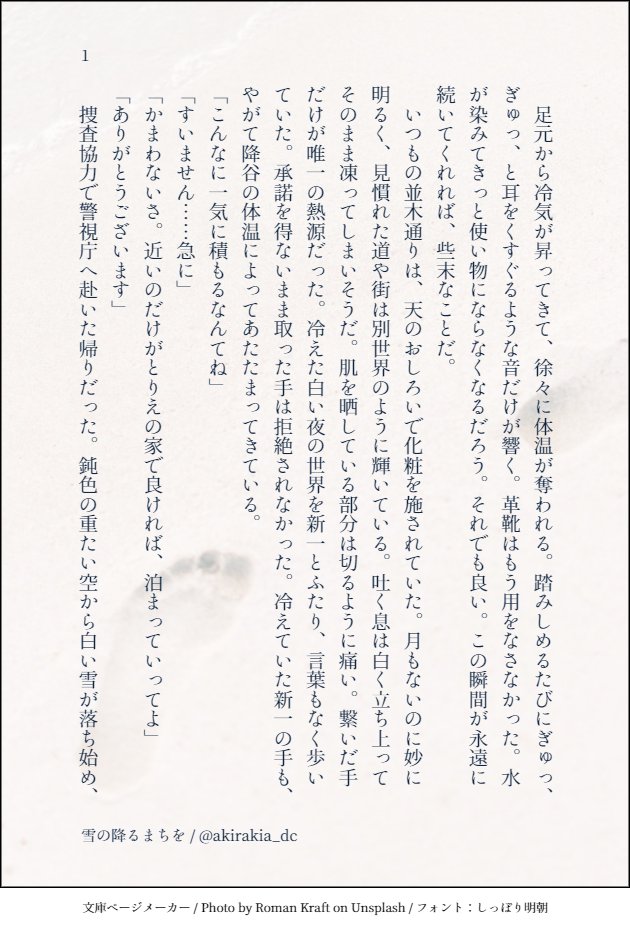 1
　足元から冷気が昇ってきて、徐々に体温が奪われる。踏みしめるたびにぎゅっ、
ぎゅっ、と耳をくすぐるような音だけが響く。革靴はもう用をなさなかった。水
が染みてきっと使い物にならなくなるだろう。それでも良い。この瞬間が永遠に
続いてくれれば、些末なことだ。
　いつもの並木通りは、天のおしろいで化粧を施されていた。月もないのに妙に
明るく、見慣れた道や街は別世界のように輝いている。吐く息は白く立ち上って
そのまま凍ってしまいそうだ。肌を晒している部分は切るように痛い。繋いだ手
だけが唯一の熱源だった。冷えた白い夜の世界を新一とふたり、言葉もなく歩い
ていた。承諾を得ないまま取った手は拒絶されなかった。冷えていた新一の手も、
やがて降谷の体温によってあたたまってきている。
「こんなに一気に積もるなんてね」
「すいません……急に」
「かまわないさ。近いのだけがとりえの家で良ければ、泊まっていってよ」
「ありがとうございます」
　捜査協力で警視庁へ赴いた帰りだった。鈍色の重たい空から白い雪が落ち始め、
雪の降るまちを / @akirakia_dc
文庫ページメーカー / Photo by Roman Kraft on Unsplash / フォント：しっぽり明朝